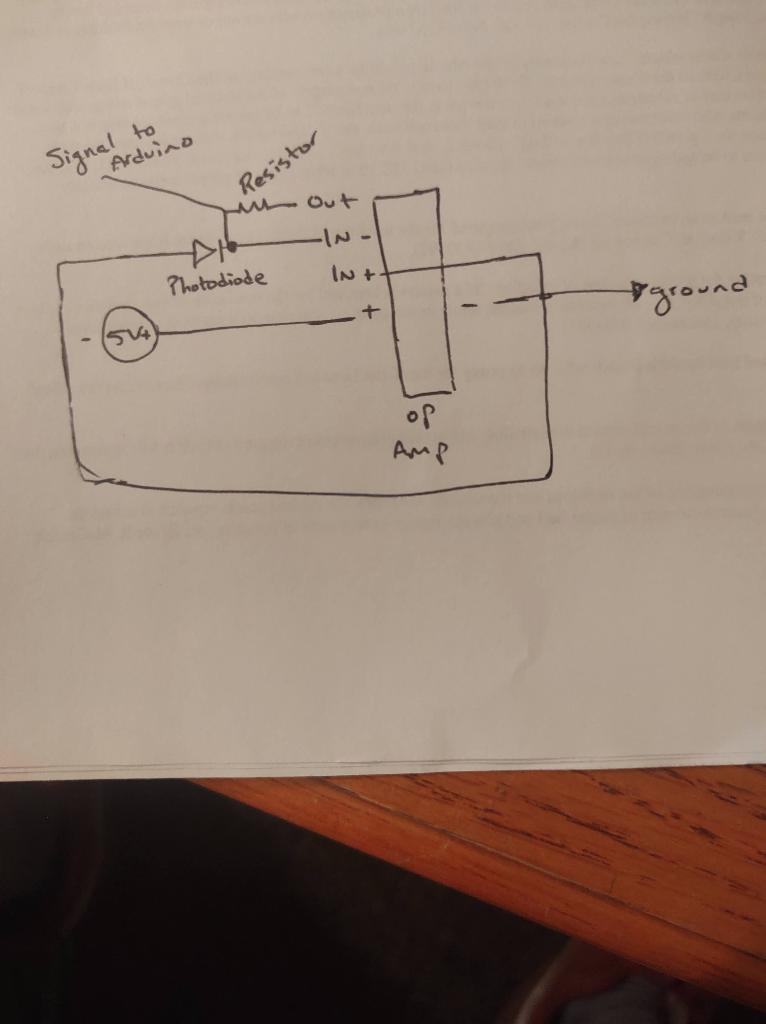 Signal to
Arduino
Resistor
Out
IN -
IN +
+
-
Photodiode
- 5V+
ground
OP
Amp